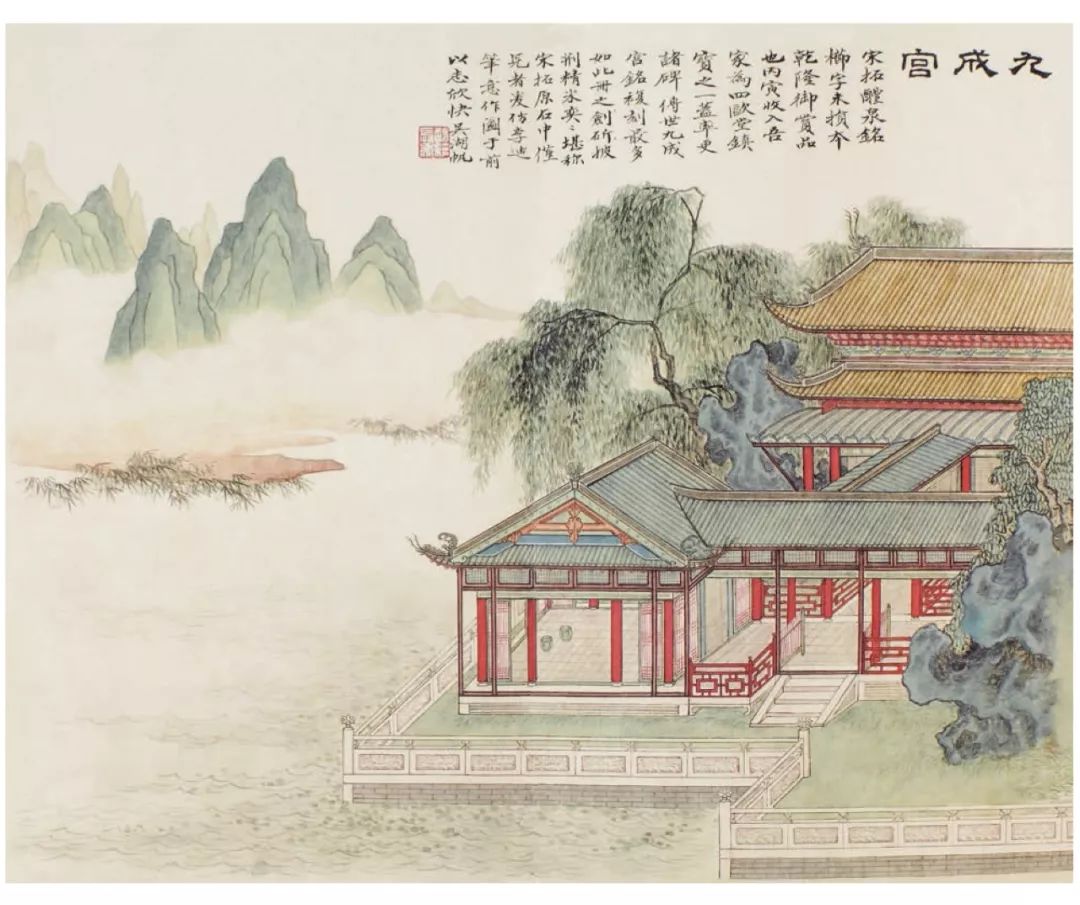 九成宮
宋拓醴泉銘
櫛字未損本
乾隆御賞品
也丙寅收入吾
家為四歐堂鎮
寶之一蓋率更
諸碑傳世九成
宮銘複刻最多
如此冊之斫披
荊精奕〻堪称
宋拓原石中僅
見者爰仿李迪
筆意作圖于前
以志欣快吳湖帆